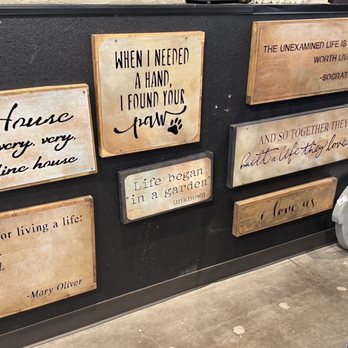 House
very, very,
fine house
for living a life:
-Mary Oliver
WHEN I NEEDED
A HAND,
I FOUND YOUR
paw
Life began
in a garden
unknown
THE UNEXAMINED LIFE IS
WORTH LIV
-SOCRAT
AND SO TOGETHER THEY
built a life they loved
i love us